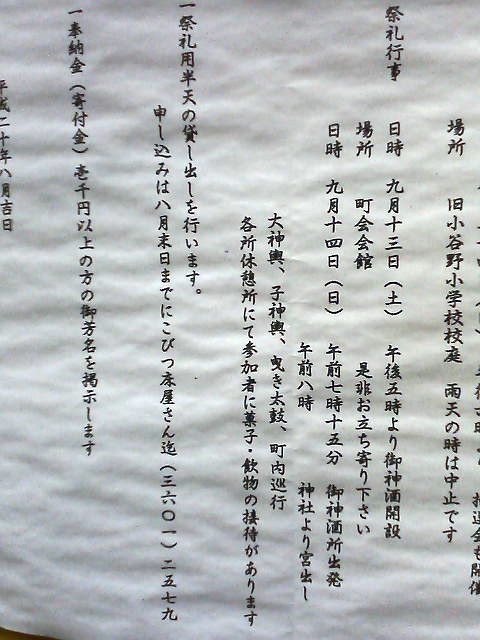 場所　旧小谷野小学校校庭　雨天の時は中止です
祭礼行事
日時　九月十三日（土）　午後五時より御神酒開設
場所　町会会館　是非お立ち寄り下さい
日時　九月十四日（日）　午前七時十五分　御神酒所出発
午前八時　神社より宮出し
大神輿、子神輿、曳き太鼓、町内巡行
各所休憩所にて参加者に菓子・飲物の接待があります
一祭礼用半天の貸し出しを行います。
申し込みは八月末日までにこびつ床屋さん迄（三六〇一）二五七九
一奉納金（寄付金）壱千円以上の方の御芳名を掲示します
平成二十年八月吉日